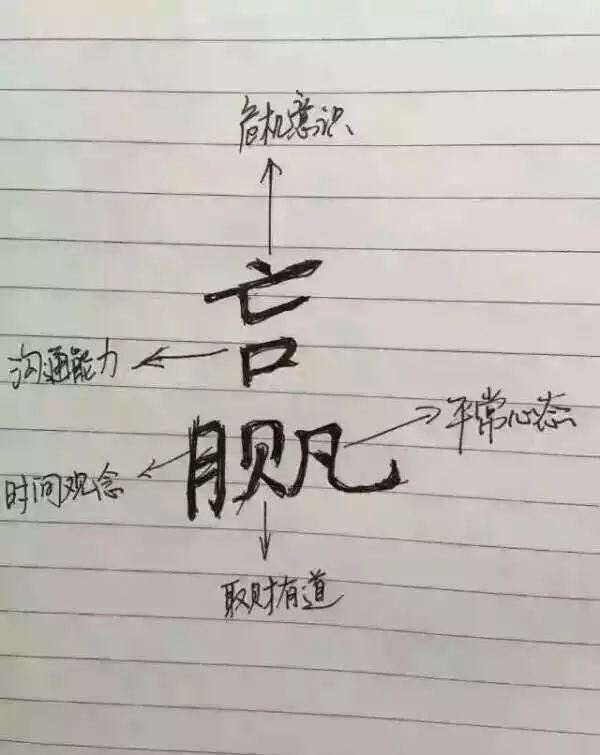 危机意识
亡
沟通能力 口
平常心态
月贝凡
时间观念
取财有道